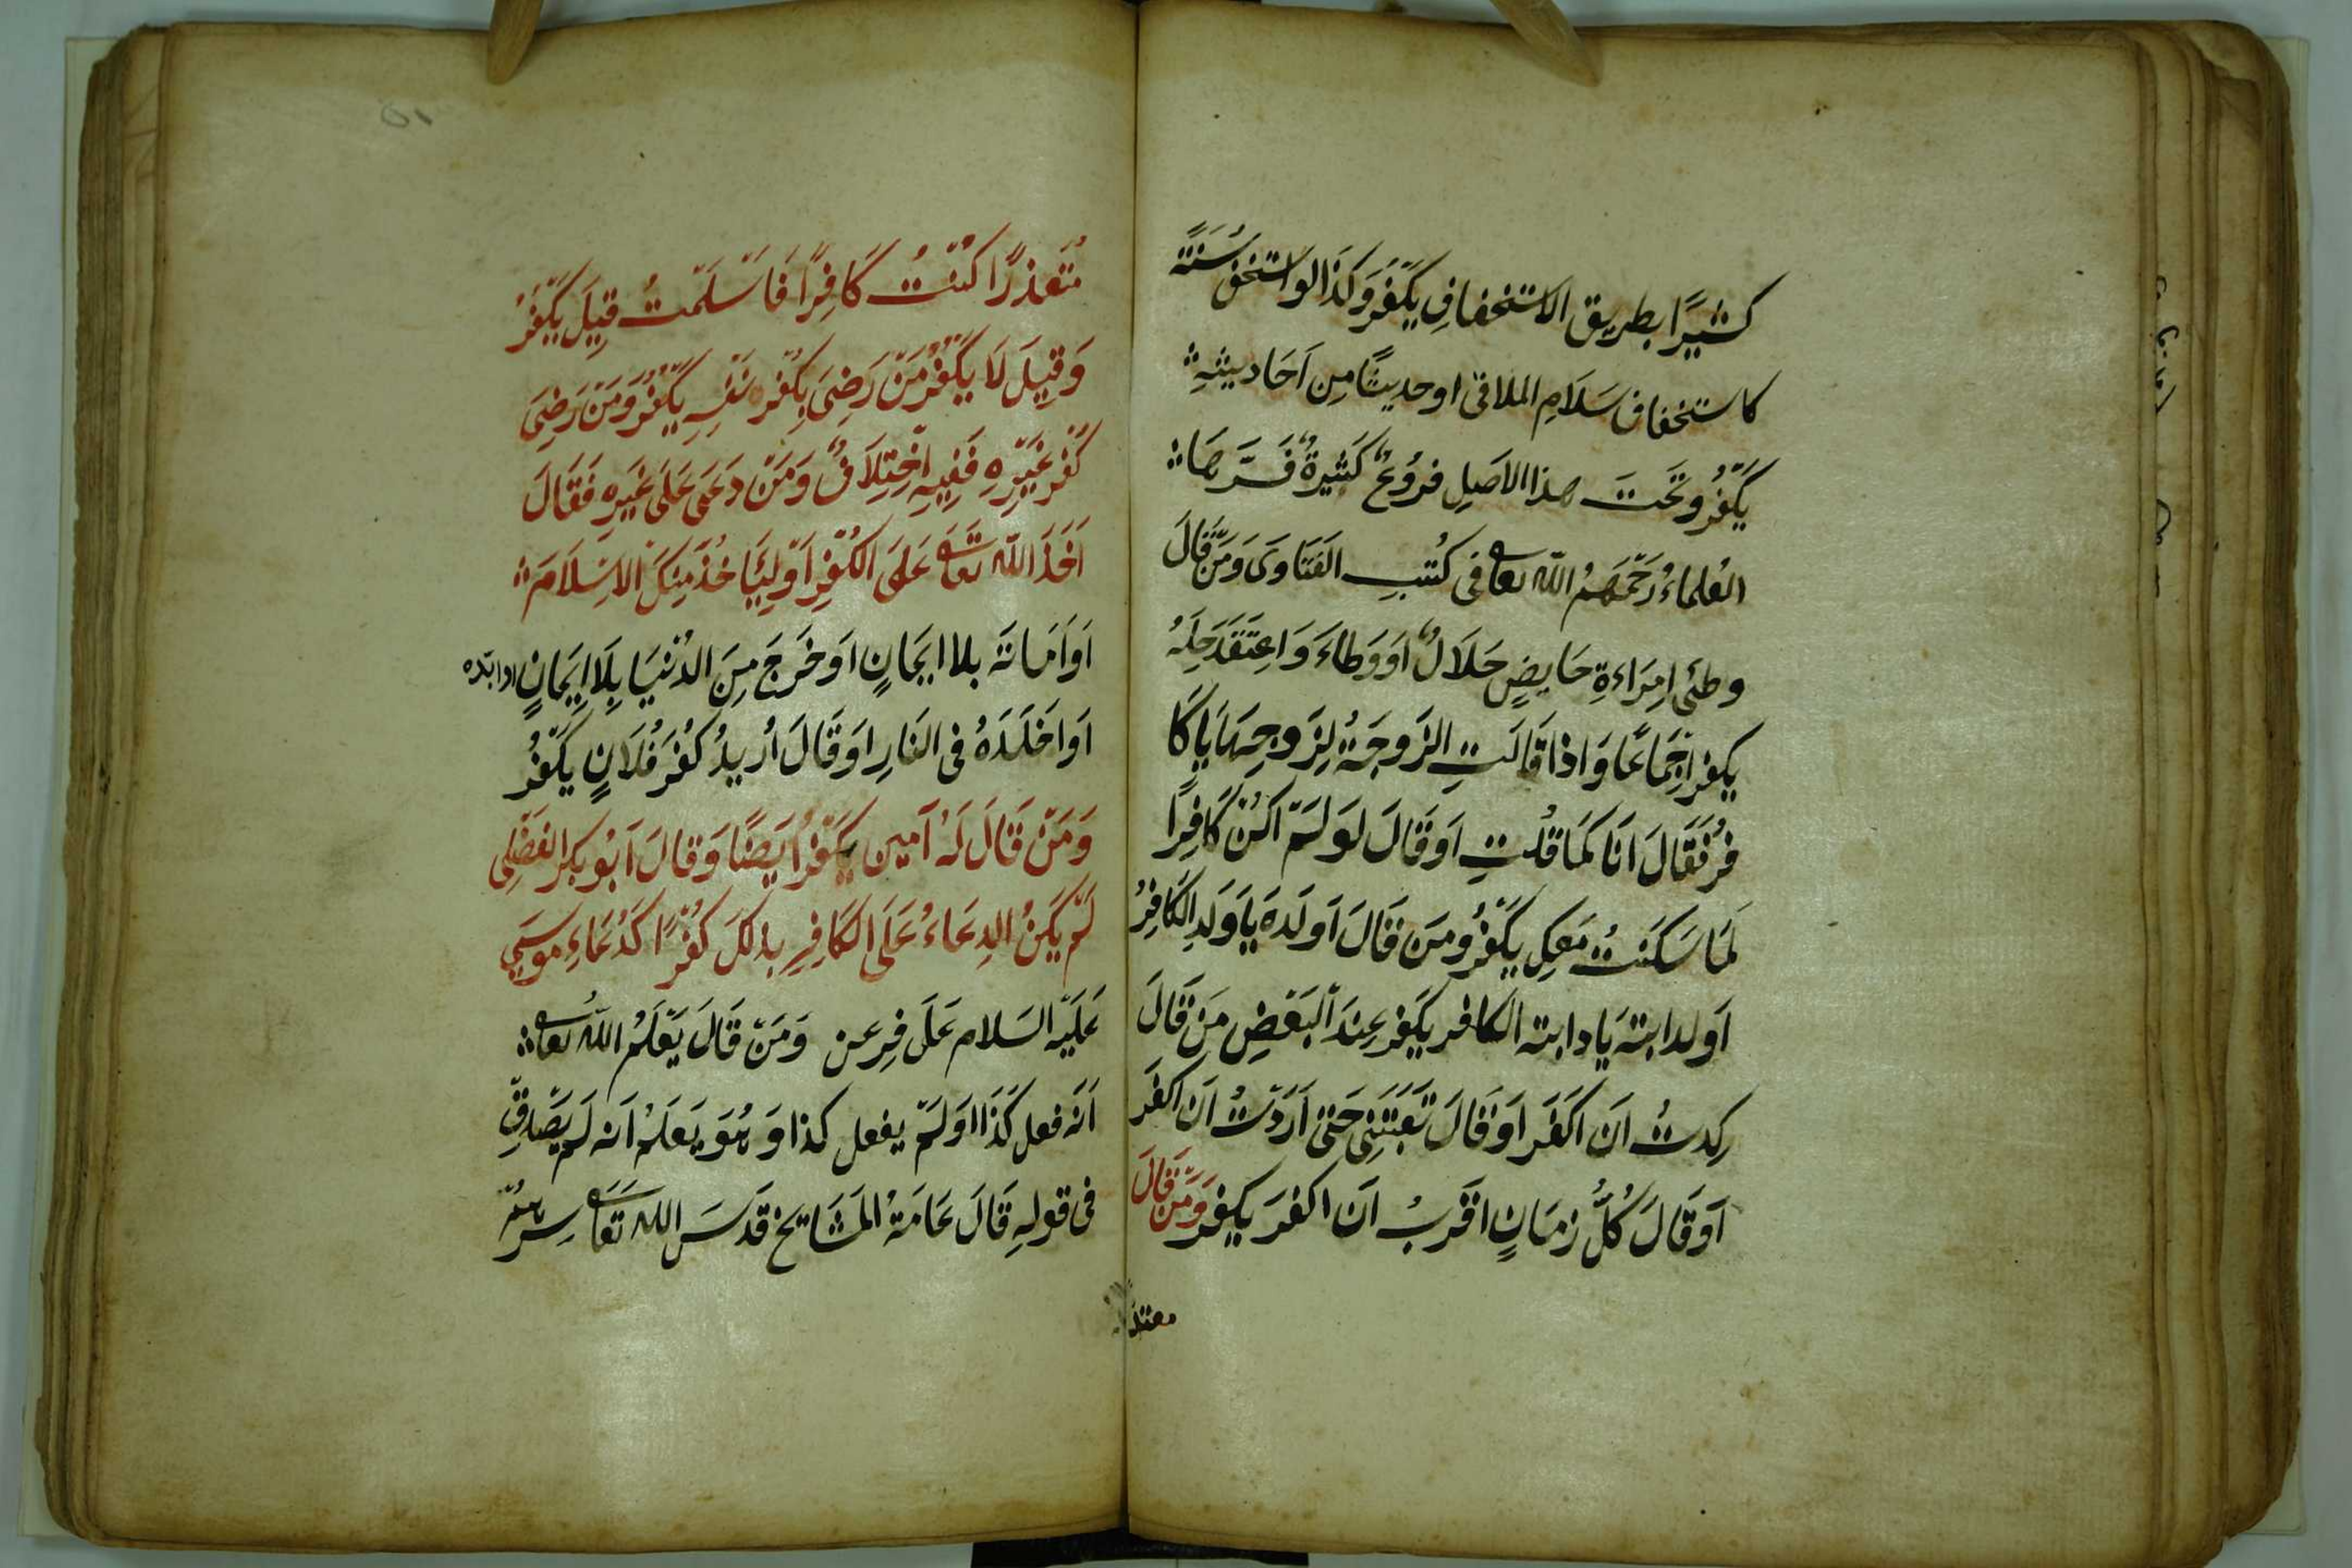 كثيرًا بطريق الاستخفافِ يكفرُ وكذا لو استخف سُنةً
كاستخفاف سَلَامِ الملاقى او حديثًا مِن اَحَاديثهِ
يكفرُ وتحتَ هذا الاصلِ فروعٌ كثيرةٌ فَسَّرهَا
العُلماءُ رَحِمَهُمُ اللّٰه تعا فى كُتبِ الفَتَاوَى وَمَنْ قَالَ
وطئى اِمرَاءةِ حَايضٍ حَلَالٌ اَوَ وَطاءَ وَاعتَقَدَ حِلَهُ
يكفر اِجمَاعًا وَاذا قَالَتِ الزَوجَةُ لِزَوجِهَا يَا كَا
فِرُ فَقَالَ اَنَا كَمَا قُلتِ اَوَ قَالَ لوَ لَمْ اكُنْ كَافِرًا
لَمَا سَكَنتُ مَعكِ يكفرُ ومَن قَالَ اَولَدهَ يَا وَلدِ الكَافِرُ
اَو لدابتهَ يَا دابته الكافر يكَفر عِندَ اَلبَعَضِ مَن قَالَ
رِكدتُ اَن اكَفَر اَو قَالَ تَعَبتَنِى حَتى اَرَدْتُ اَن اكفرَ
اَوَ قَالَ كُلَّ زمَانٍ اقَربُ اَن اكفرَ يكفرُ وَمَنْ قَالَ
معتذرًا
مُتعَذرًا كُنْتُ كَافِرًا فَاَسْلَمْتُ قِيلَ يكَفرُ
وَقِيلَ لَا يكفرُ مَنْ رَضِىَ بِكُفرِ نَفسِهِ يكفرُ وَمَنْ رَضِىَ
كفرِ غَيْرِهِ فَفِيهِ اِختِلَافٌ وَمَنْ دَعَى عَلَى غَيرِهِ فَقَالَ
اَخَذَ اللّٰه تعَا عَلىَ الكُفرِ اَوَ لِئَيَا خُذَ مِنكَ الاسِلَامَ
اَوَ اَمَاتَهَ بلا ايمَانٍ اَو خَرَجَ مِنَ الدُنْيَا بِلَا اِيمَانٍ او ابّده
اَوَ اَخَلَدَهُ فى النَارِ اوَ قَالَ اُريدُ كفرَ فُلَانٍ يكفرُ
وَمَنْ قَالَ لَهُ آمين يكفرُ اَيضًا وَقالَ اَبُو بكر الفضَلِى
لَمْ يَكَنُ الدِعَاءُ عَلَى الكَافِرِ بذلكَ كُفرًا كَدُعَاءِ موسَى
عَلَيْهِ السَلام عَلَى فِرعن وَمَنْ قَالَ يَعْلَمُ اللّٰهُ تعا
اَنَه فعل كَذَا اَوَ لَمْ يفعل كذا وَ هُوَ يَعلَمُ اَنه لَم يَصدقْ
فى قولهِ قَالَ عَامَةُ المَشَايخ قَدسَ الله تَعَا سِرهُمْ